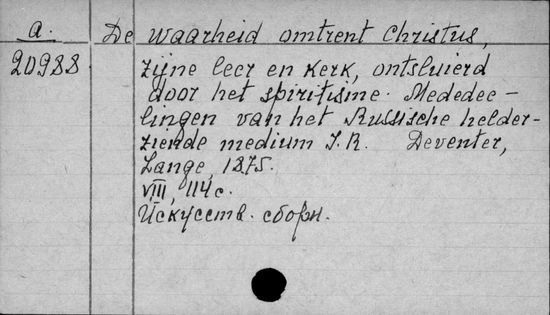 a.
20988
De waarheid omtrent Christus,
zijne leer en kerk, ontsluierd
door het spiritisme. Mededee-
lingen van het Russische helder-
ziende medium J.R. Deventer,
Lange, 1875.
VIII, 114 c.
Искусств. сборн.